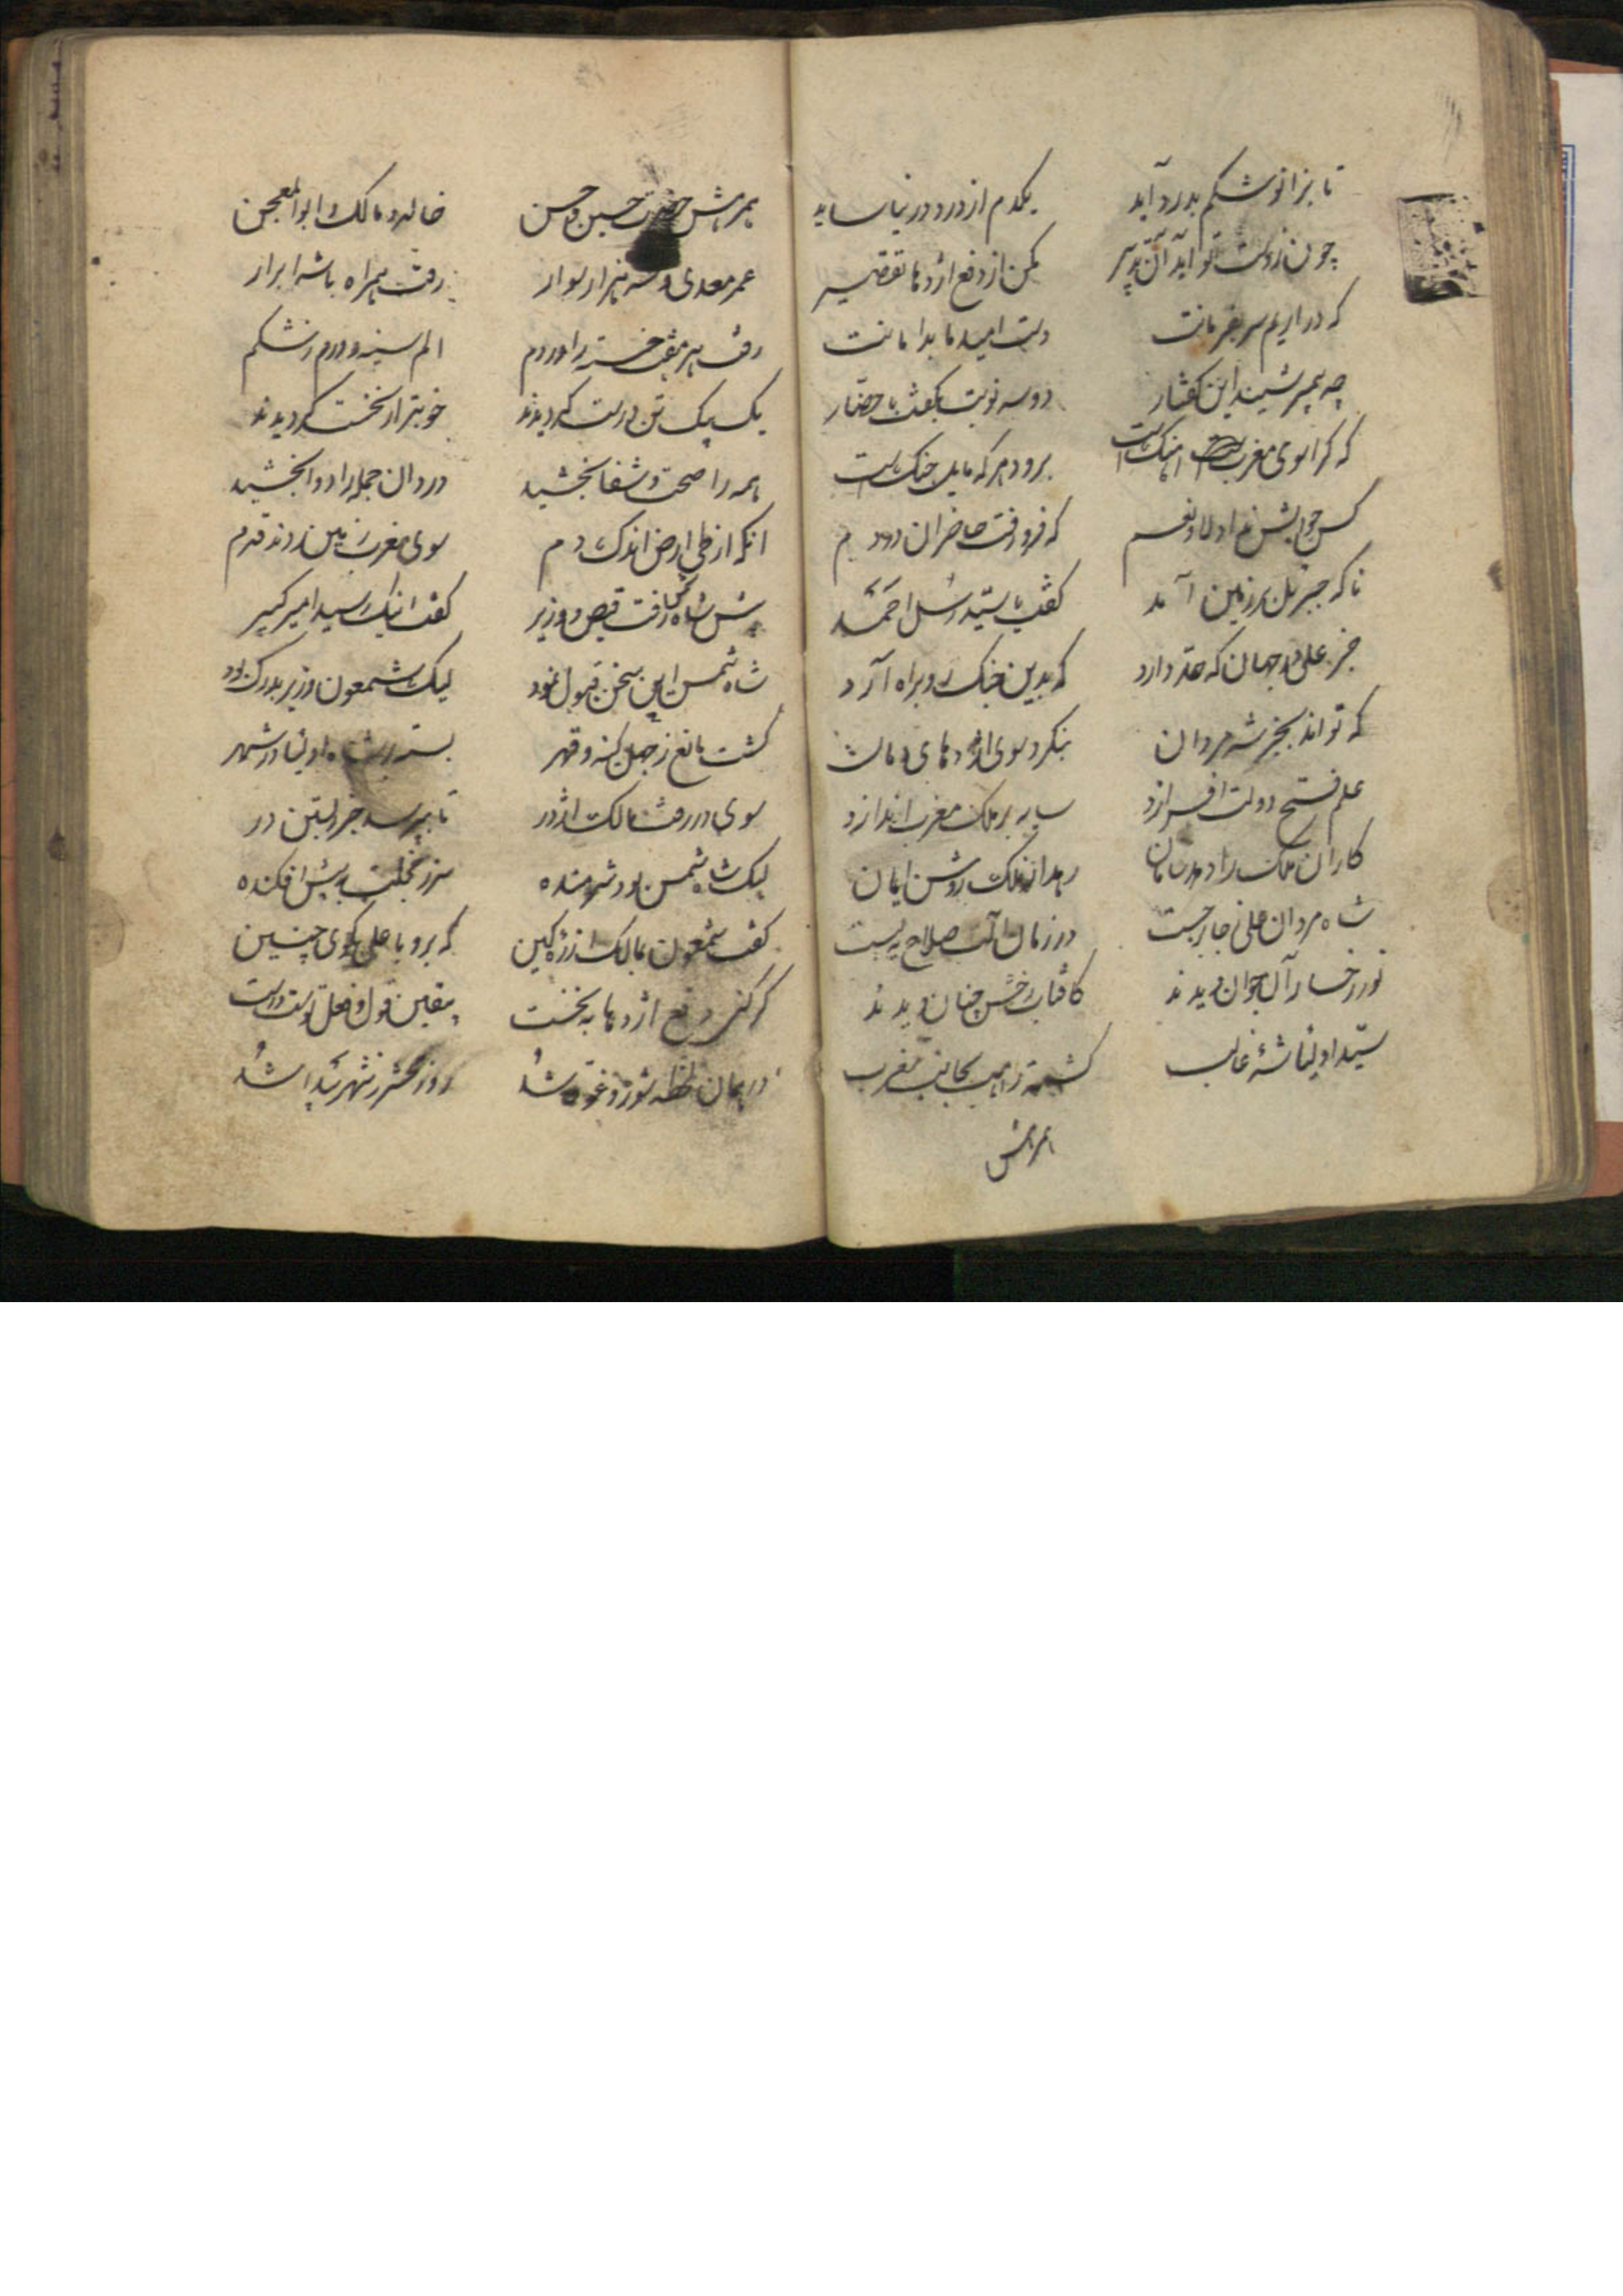 تا بزانو شکم بدرد آید یکدم از درد در نیاساید
چون ز دست تو آید آن تدبیر مکن از دفع اژدها تقصیر
که در اریم سر بفرمانت دست امید ما بدامانت
چه پیمبر شنید این گفتار دو سه نوبت بگفت با حضار
که کرا سوی مغرب اهنک است برود هر که مایل جنک است
کس جوابش نداد لا و نعم که فرو رفت حاضران را دم
ناکه جبریل بر زمین آمد گفت با سید رسل احمد
جز علی در جهان که حد دارد که بدین جنک رو براه آرد
که تواند بجز شه مردان بنکرد سوی اژدهای دمان
علم فتح دولت افرازد سایه بر ملک مغرب اندازد
کاران ملک را دهد سامان رهد آن ملک روشن ایمان
شاه مردان علی ز جا برجست در زمان آلت صلاح به بست
نور رخسار آل جوان دیدند کافتاب رخش چنان دیدند
سید اولیا شه غالب کشت راهب بجانب مغرب
همرهش
همرهش حضرت حسین و حسن خالد و مالک و ابوالمعجن
عمر معدی و سه هزار سوار رفت همراه با شه ابرار
الم سینه و درم ز شکم
یک بیک تن درست کردیدند خوبتر از نخست کردیدند
همه را صحت و شفا بخشید درد ان جمله را دوا بخشید
انکه از طی ارض اندک دم سوی مغرب زمین زدند قدم
پیش شاه رفت قیص وزیر گفت اینک رسید امیر کبیر
شاه شمس این سخن قبول نمود لیک شمعون وزیر بدرک بود
کشت مانع ز جهل کینه و قهر بست بر شاه اولیا در شهر
سوی در رفت مالک اژدر تا بپرسد خبر ز بستن در
لیک شاه شمس بود شرمنده سر ز خجلت به پیش افکنده
گفت شمعون بمالک از ره کین که برو با علی بکوی چنین
کر کنی دفع اژدها به نخست بیقین قول و فعل تست درست
در همان لحظه شور و غوغا شد روز محشر ز شهر پیدا شد